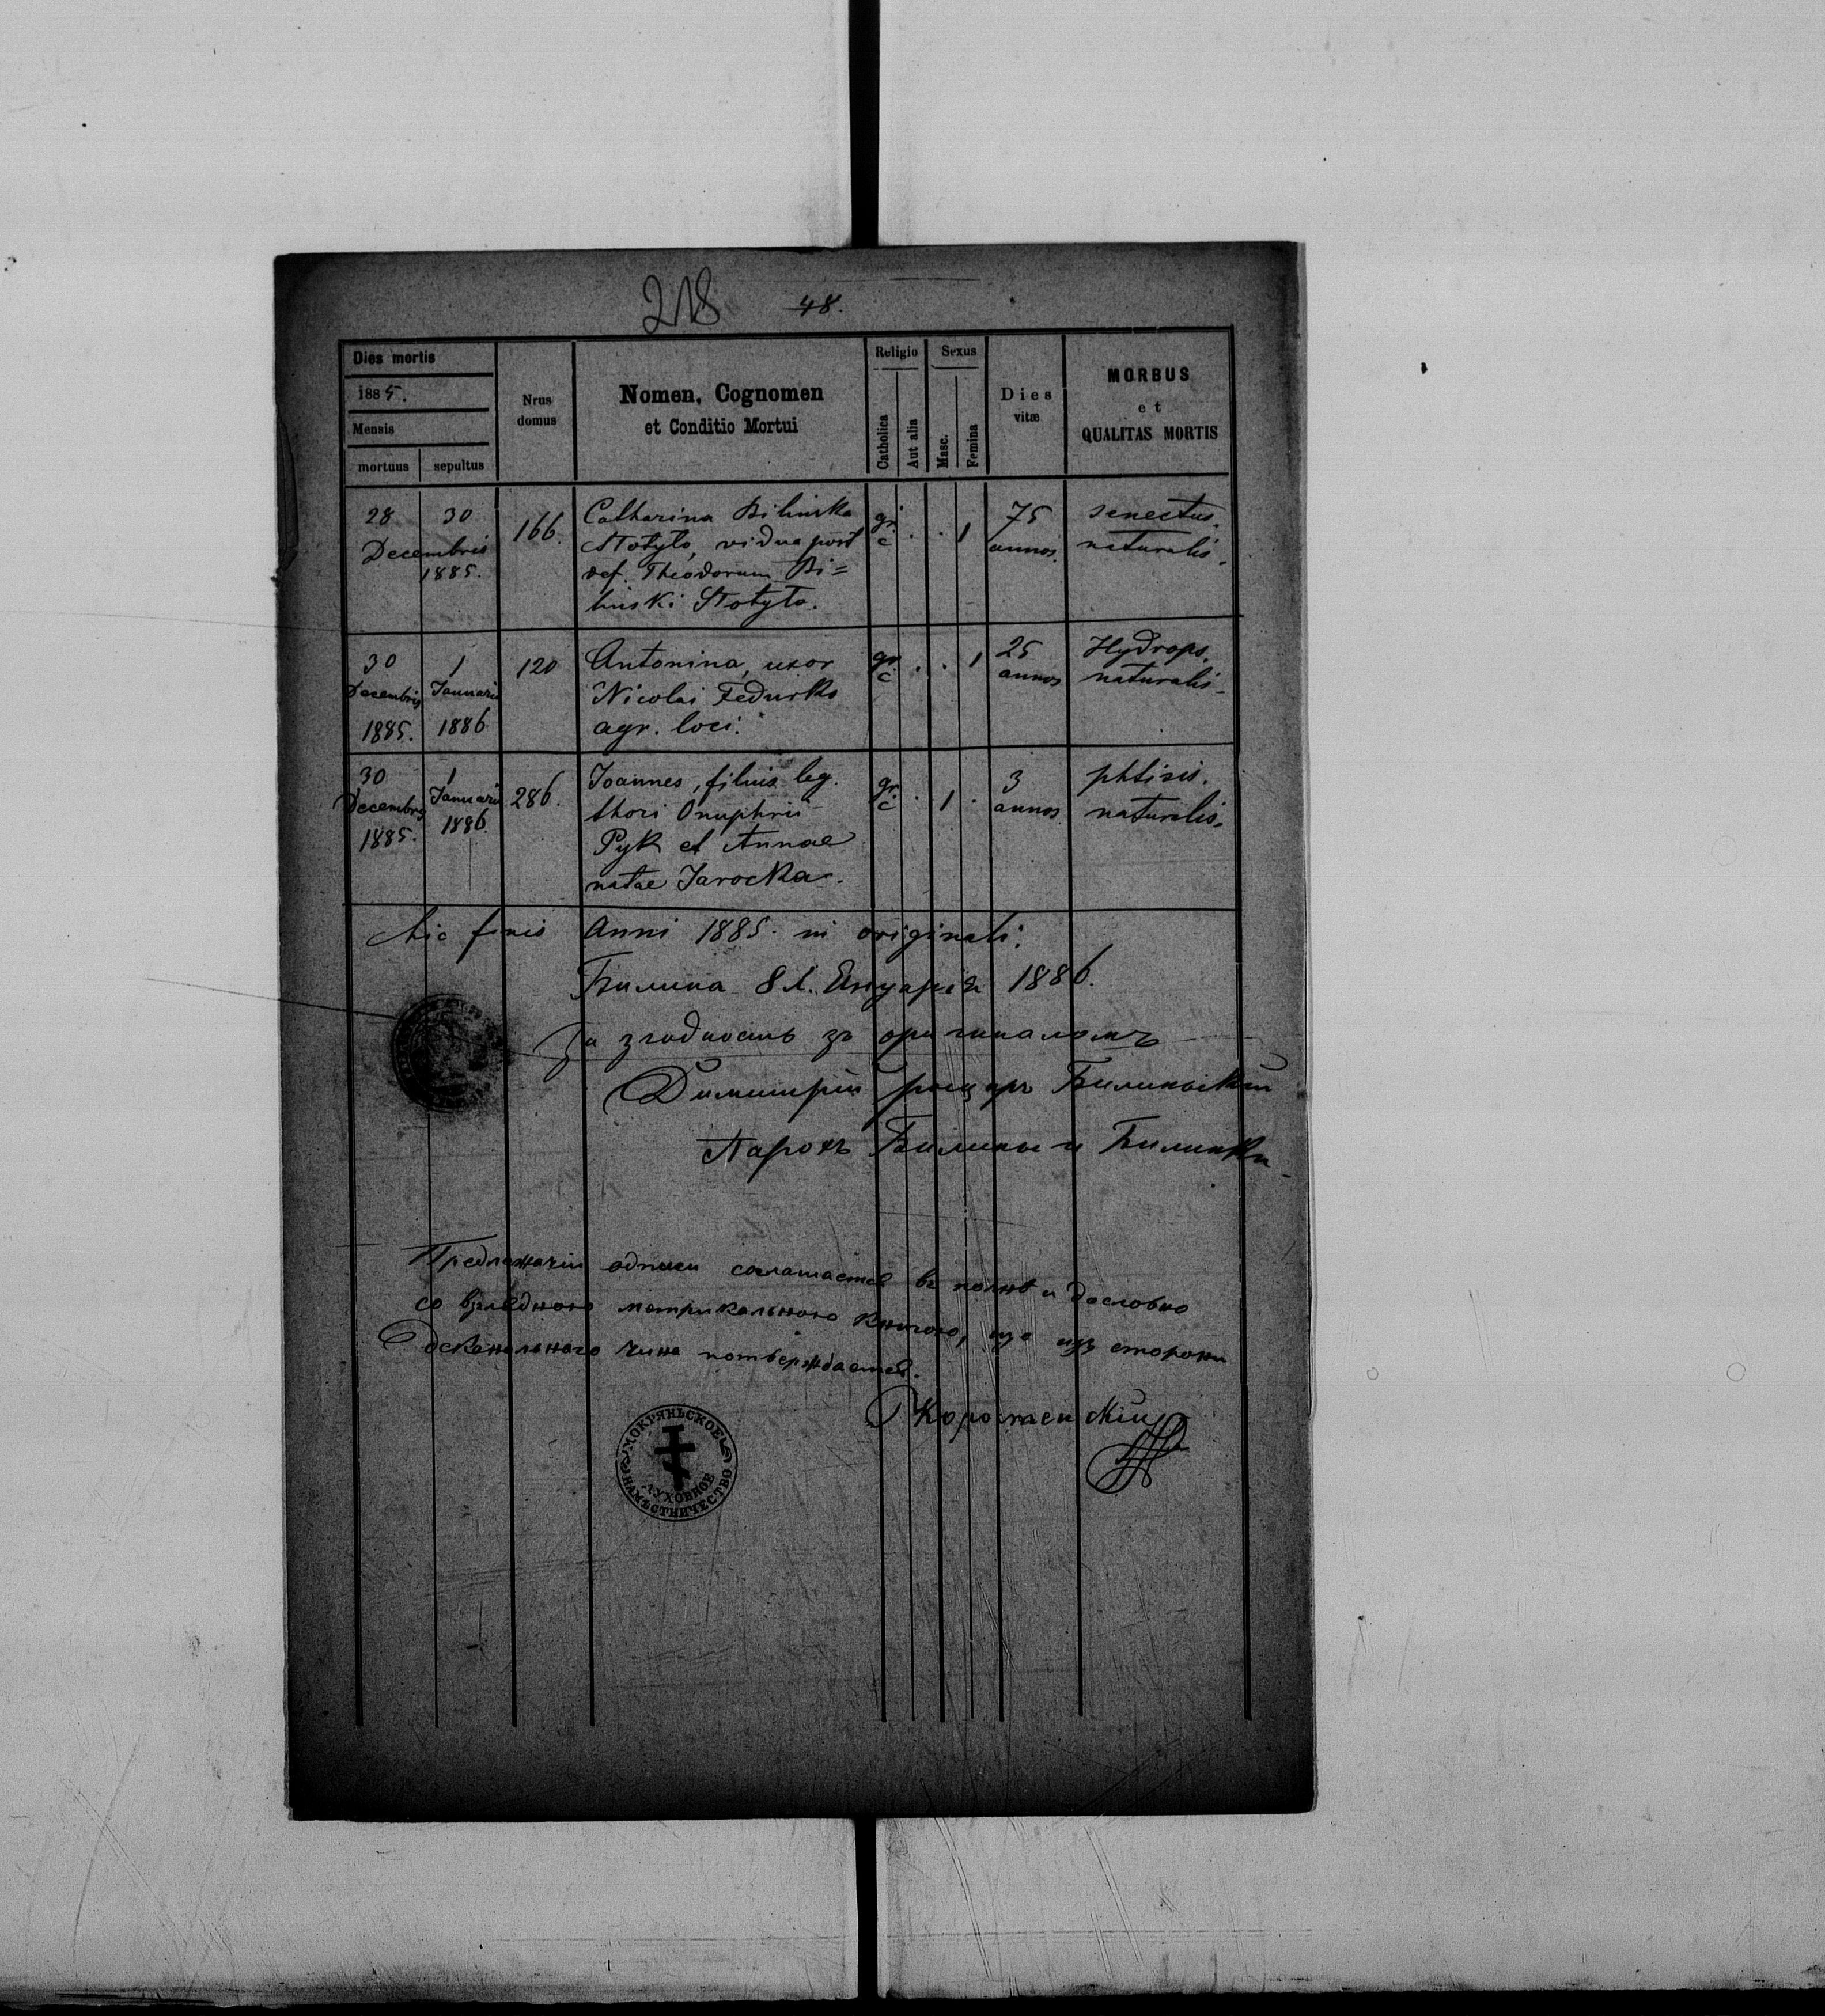 218 48.
Dies mortis
1885.
Mensis
mortuus sepultus
Nrus
domus
Nomen, Cognomen
et Conditio Mortui
Religio
Catholica
Aut alia
Sexus
Masc.
Femina
Dies
vitæ
MORBUS
et
QUALITAS MORTIS
28 30
Decembris
1885.
166.
Catharina Bilinska
vidua post
def. Theodorum Bi=
linski
gr.
c
. . 1
75
annos
senectus.
naturalis.
30
Decembris
1885.
1
Januarii
1886
120
Antonina, uxor
Nicolai Fedurko
agr. loci.
gr.
c
. . 1
25
annos
Hydrops.
naturalis.
30
Decembris
1885.
1
Januarii
1886.
286.
Joannes, filius leg.
thori Onuphrii
Pyk et Annae
natae Jarocka.
gr.
c
. 1 .
3
annos
phtisis.
naturalis.
hic finis Anni 1885. in originali.
Билина 8 Януарія 1886.
За згодность зъ оригиналомъ
Димитрій рыцарь Билиньскій
Парохъ Билины и Билинки
Предлежачій одписъ соглашаеться въ полнѣ и дословно
со взглядною метрикальною книгою, що изъ стороны
деканального чина потверждаеться.
МОКРЯНЬСКОЕ
ДУХОВНОЕ
НАМѢСТНИЧЕСТВО